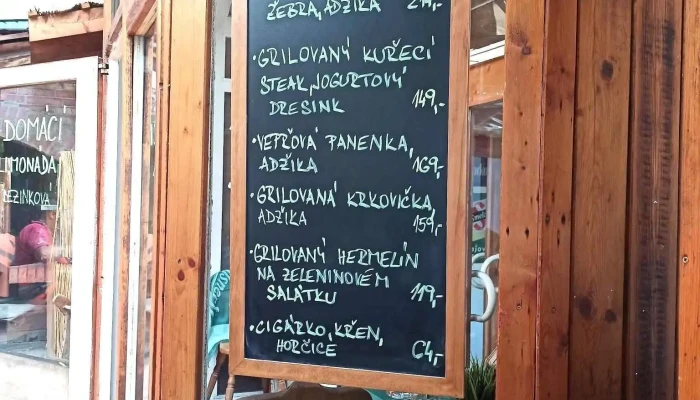 ŽEBRA, ADŽIKA
·GRILOVANÝ KUŘECÍ
STEAK, JOGURTOVÝ
DRESINK 149,-
·VEPŘOVÁ PANENKA,
ADŽIKA 169,-
·GRILOVANÁ KRKOVIČKA,
ADŽIKA 159,-
·GRILOVANÝ HERMELÍN
NA ZELENINOVÉM
SALÁTKU 119,-
·CIGÁRKO, KŘEN,
HORČICE 64,-
DOMÁCÍ
LIMONÁDA
BEZINKOVÁ